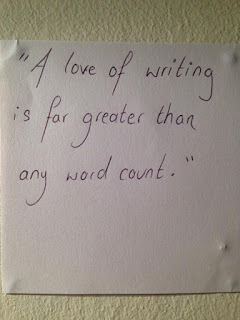 "A love of writing
is far greater than
any word count."